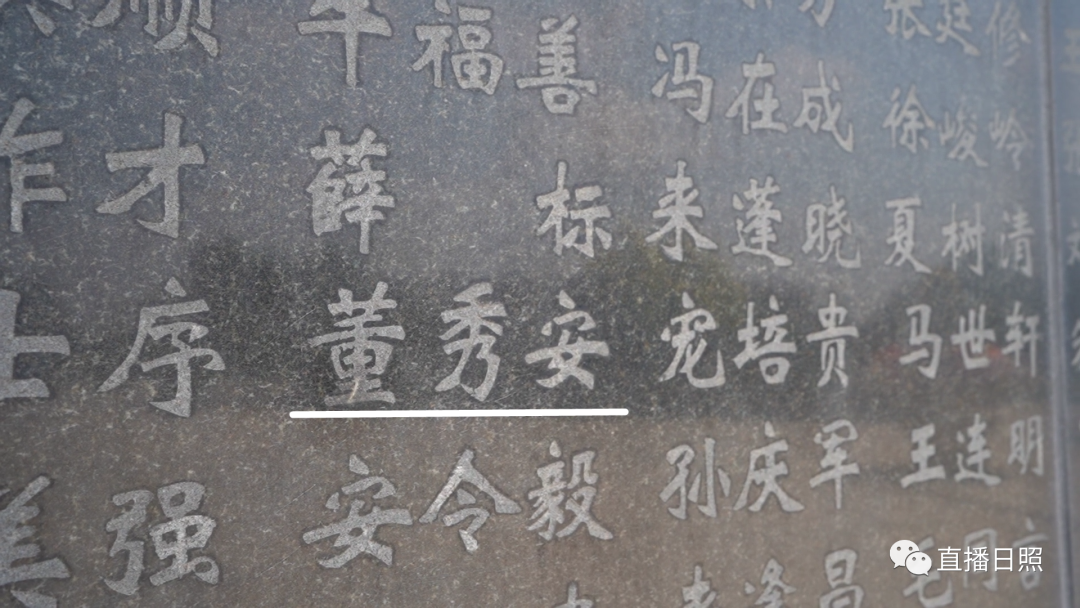 顺 福善 冯在成 张廷修
作才 薛标 来蓬晓 徐峻岭
士序 董秀安 宠培贵 夏树清
善强 安令毅 孙庆军 马世轩
王连明
直播日照